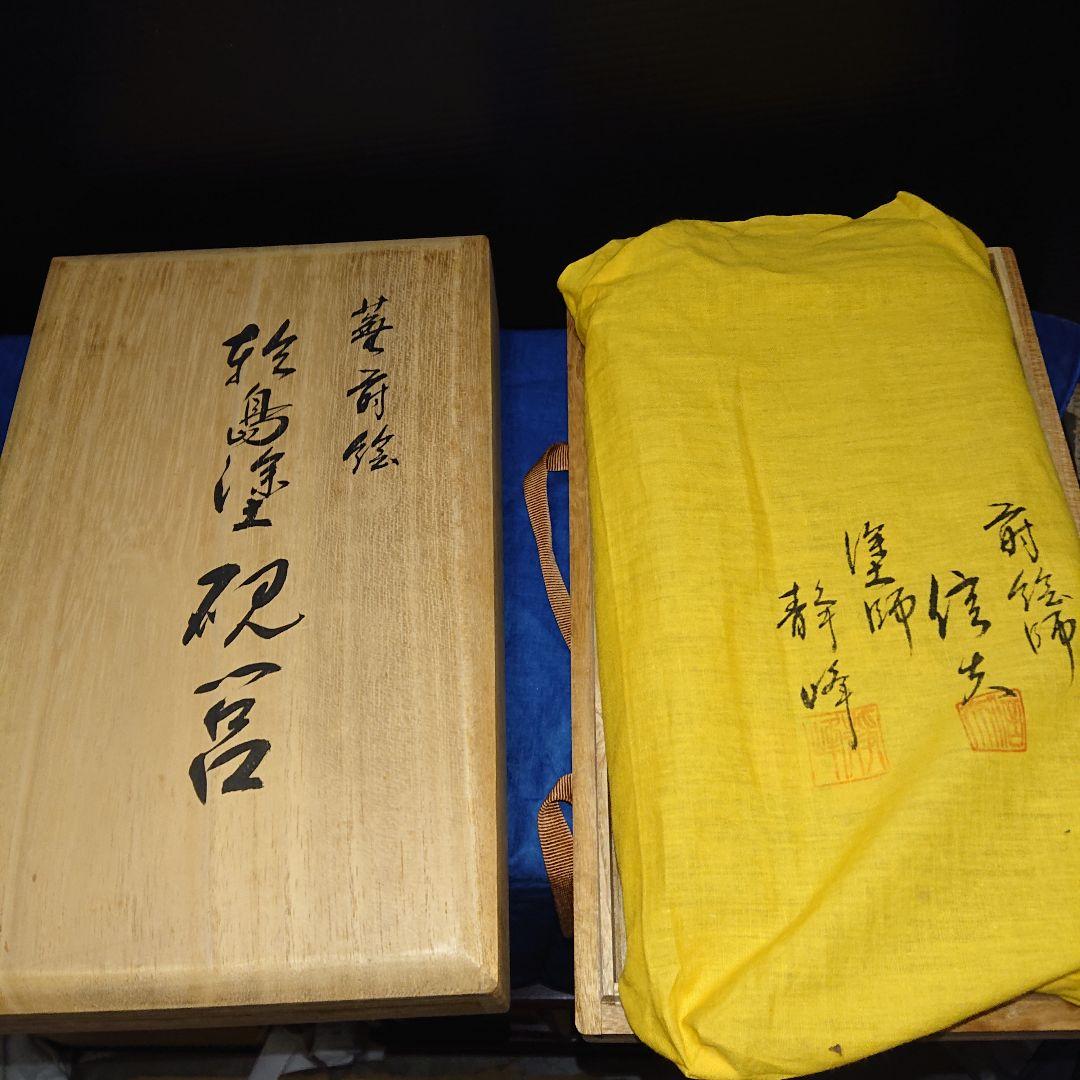 蒔絵
輪島塗硯筥
蒔絵師
信夫
塗師
静峰